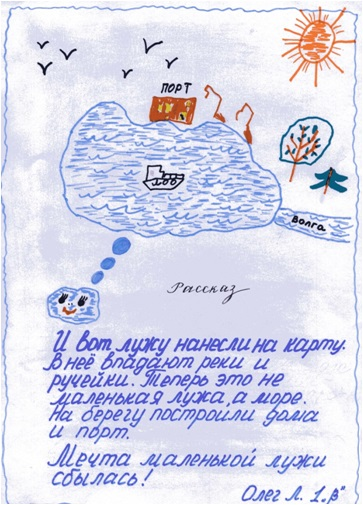 ПОРТ
Волга
Рассказ
И вот лужу нанесли на карту.
В неё впадают реки и
ручейки. Теперь это не
маленькая лужа, а море.
На берегу построили дома
и порт.
Мечта маленькой лужи
сбылась!
Олег Л. 1 „В"